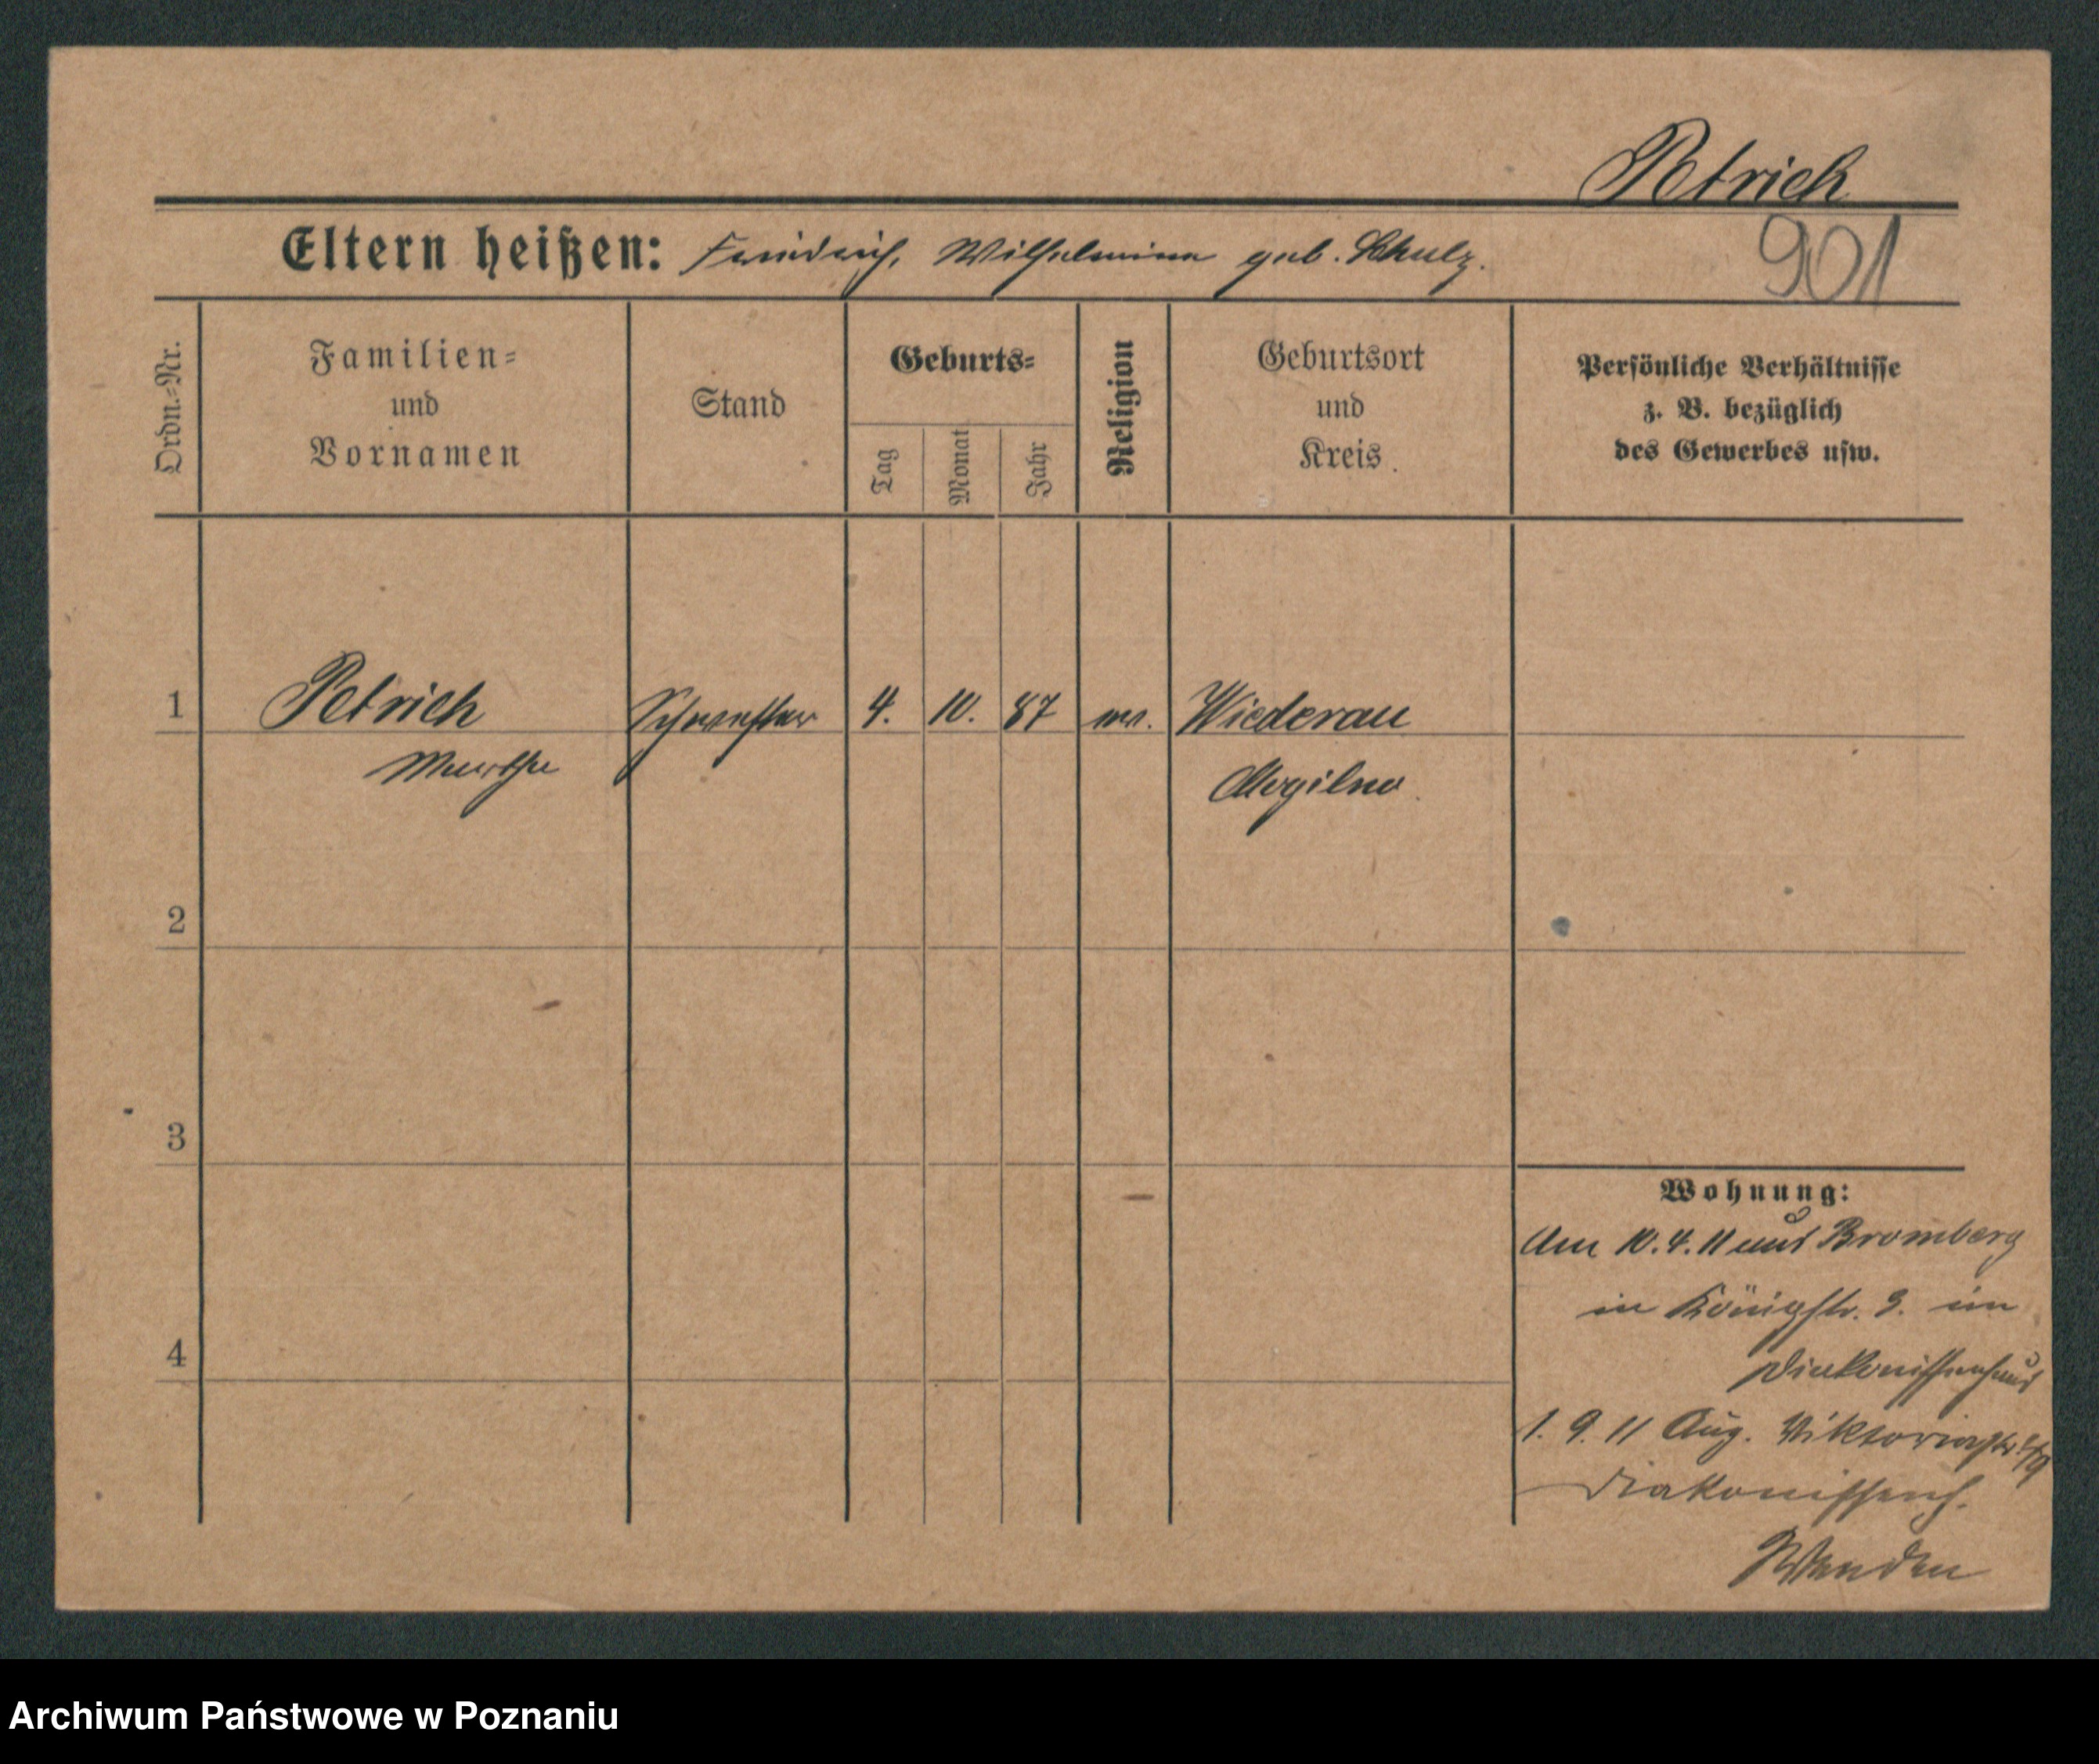 Petrich
Eltern heißen: Friedrich, Wilhelmine geb. Schulz.
901
Ordn.-Nr.
Familien-
und
Vornamen
Stand
Geburts-
Tag
Monat
Jahr
Religion
Geburtsort
und
Kreis
Persönliche Verhältnisse
z. B. bezüglich
des Gewerbes usw.
1 Petrich Schwester 4. 10. 87 ev. Wiederau
Martha Mogilno
2
3
4
Wohnung:
Am 10.4.11 aus Bromberg
in Königstr. 3. im
Diakonissenhaus
1. 9. 11 Aug. Viktoriastr.
Diakonissenh.
Archiwum Państwowe w Poznaniu